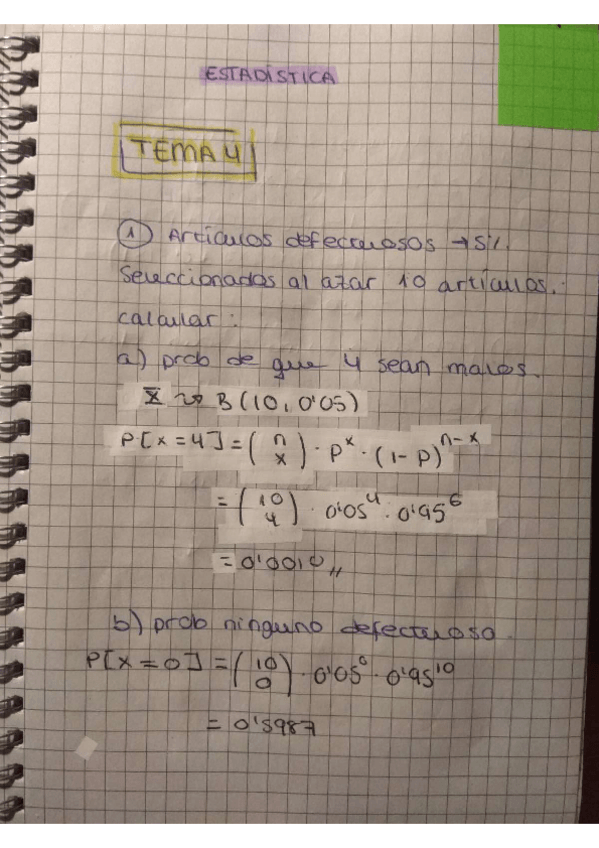 ESTADÍSTICA
TEMA 4
① Artículos defectuosos → 5%.
Seleccionados al azar 10 artículos.
calcular:
a) prob de que 4 sean malos.
X ⇝ B(10, 0'05)
P[x=4] = (n x) · p^x · (1-p)^n-x
= (10 4) · 0'05^4 · 0'95^6
= 0'0010 //
b) prob ninguno defectuoso.
P[x=0] = (10 0) · 0'05^0 · 0'95^10
= 0'5987